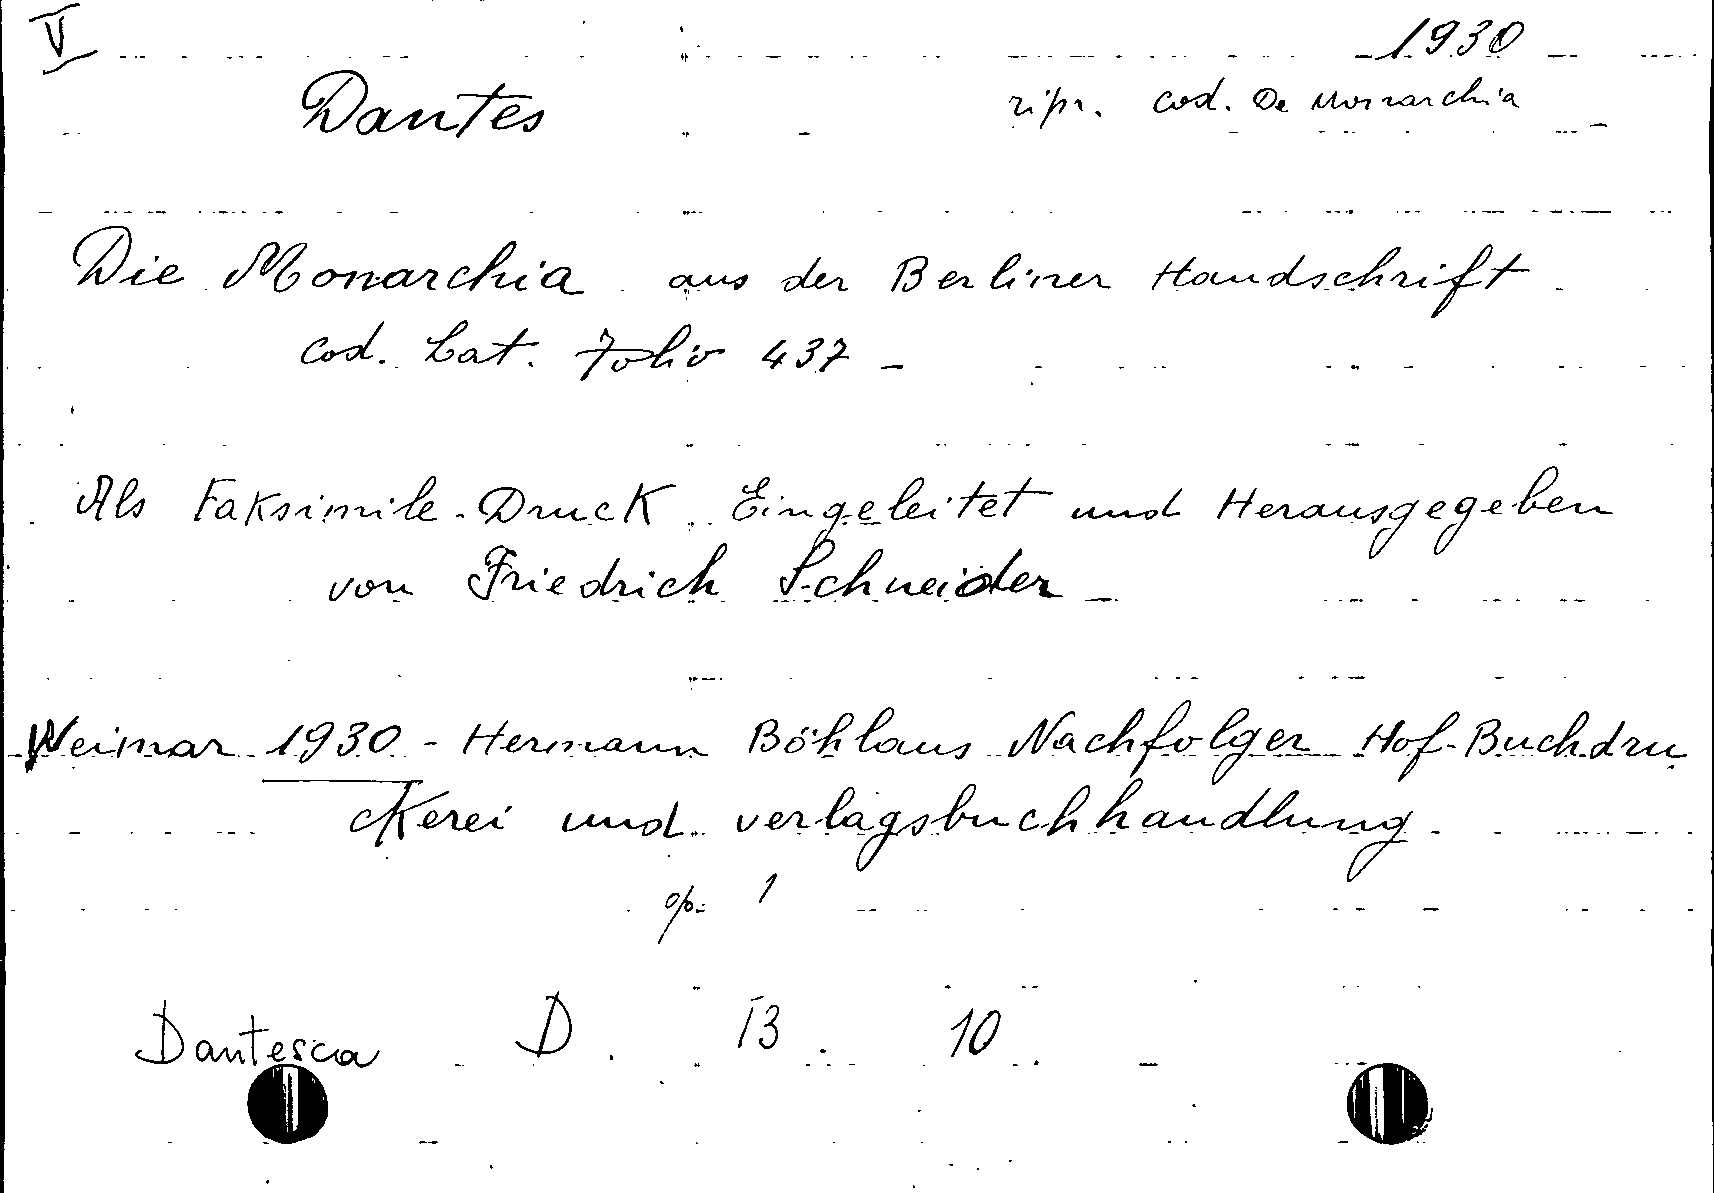 V 1930
Dantes ripr. cod. De Monarchia
Die Monarchia aus der Berliner Handschrift
cod. Lat. Folio 437 -
Als Faksimile-Druck Eingeleitet und Herausgegeben
von Friedrich Schneider -
Weimar 1930 - Hermann Böhlaus Nachfolger Hof-Buchdru
ckerei und verlagsbuchhandlung
op. 1
Dantesca D. 13. 10.